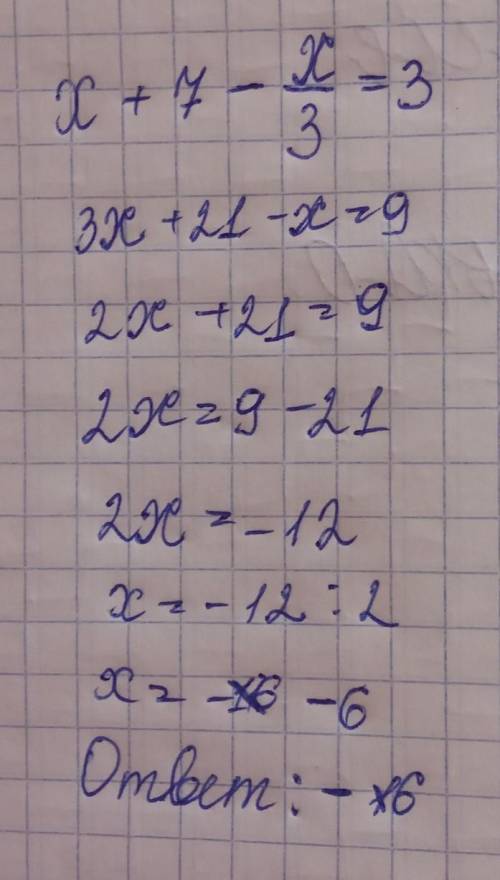 x + 7 - x/3 = 3
3x + 21 - x = 9
2x + 21 = 9
2x = 9 - 21
2x = -12
x = -12 : 2
x = -6
Ответ: -6